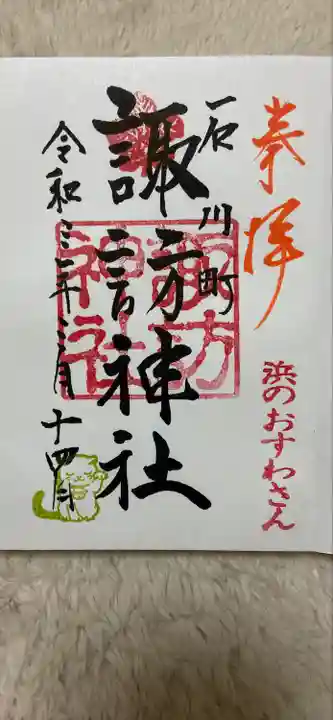 奉拝
浜のおすわさん
石川町
諏訪神社
諏訪
神社
令和三年三月十四日